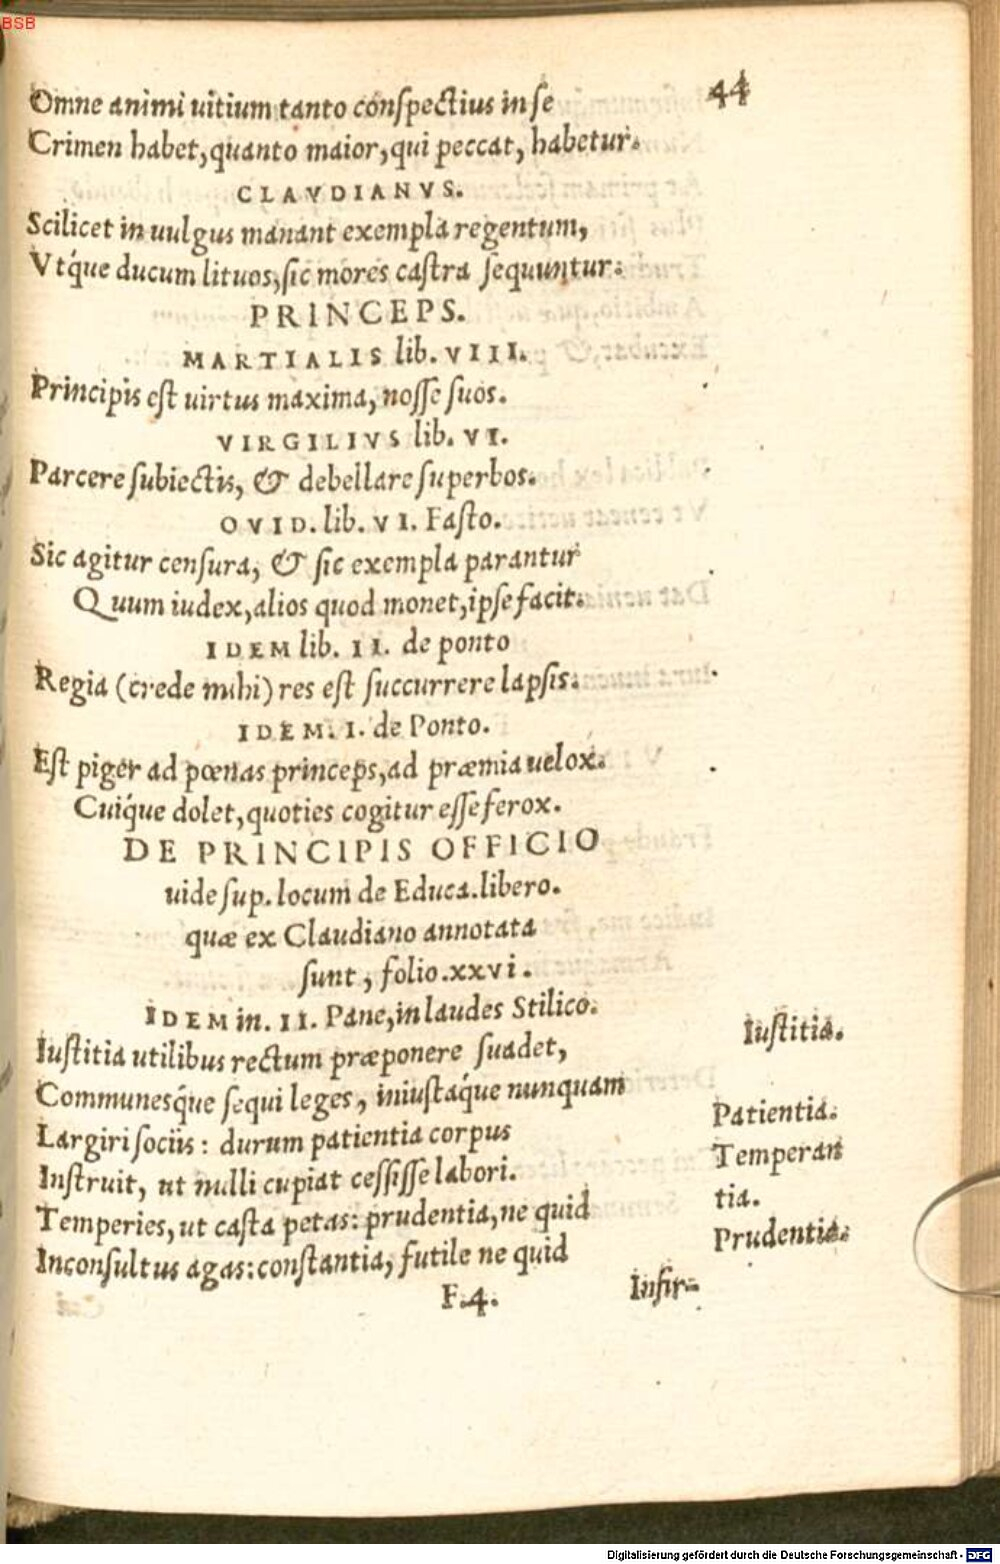 BSB
44
Omne animi uitium tanto conſpectius in ſe
Crimen habet, quanto maior, qui peccat, habetur.
CLAVDIANVS.
Scilicet in uulgus manant exempla regentum,
Vtq́ue ducum lituos, ſic mores caſtra ſequuntur.
PRINCEPS.
MARTIALIS lib. VIII.
Principis eſt uirtus maxima, noſſe ſuos.
VIRGILIVS lib. VI.
Parcere ſubiectis, & debellare ſuperbos.
OVID. lib. VI. Faſto.
Sic agitur cenſura, & ſic exempla parantur
Quum iudex, alios quod monet, ipſe facit.
IDEM lib. II. de ponto
Regia (crede mihi) res eſt ſuccurrere lapſis.
IDEM. I. de Ponto.
Eſt piger ad pœnas princeps, ad præmia uelox.
Cuiq́ue dolet, quoties cogitur eſſe ferox.
DE PRINCIPIS OFFICIO
uide ſup. locum de Educa. libero.
quæ ex Claudiano annotata
ſunt, folio. xxvi.
IDEM in. II. Pane, in laudes Stilico.
Iuſtitia utilibus rectum præponere ſuadet,
Iuſtitia.
Communesq́ue ſequi leges, iniuſtaq́ue nunquam
Largiri ſociis: durum patientia corpus
Patientia.
Inſtruit, ut nulli cupiat ceſſiſſe labori.
Temperan
Temperies, ut caſta petas: prudentia, ne quid
tia.
Inconſultus agas: conſtantia, futile ne quid
Prudentia.
F.4.
Infir-
Digitalisierung gefördert durch die Deutsche Forschungsgemeinschaft - DFG